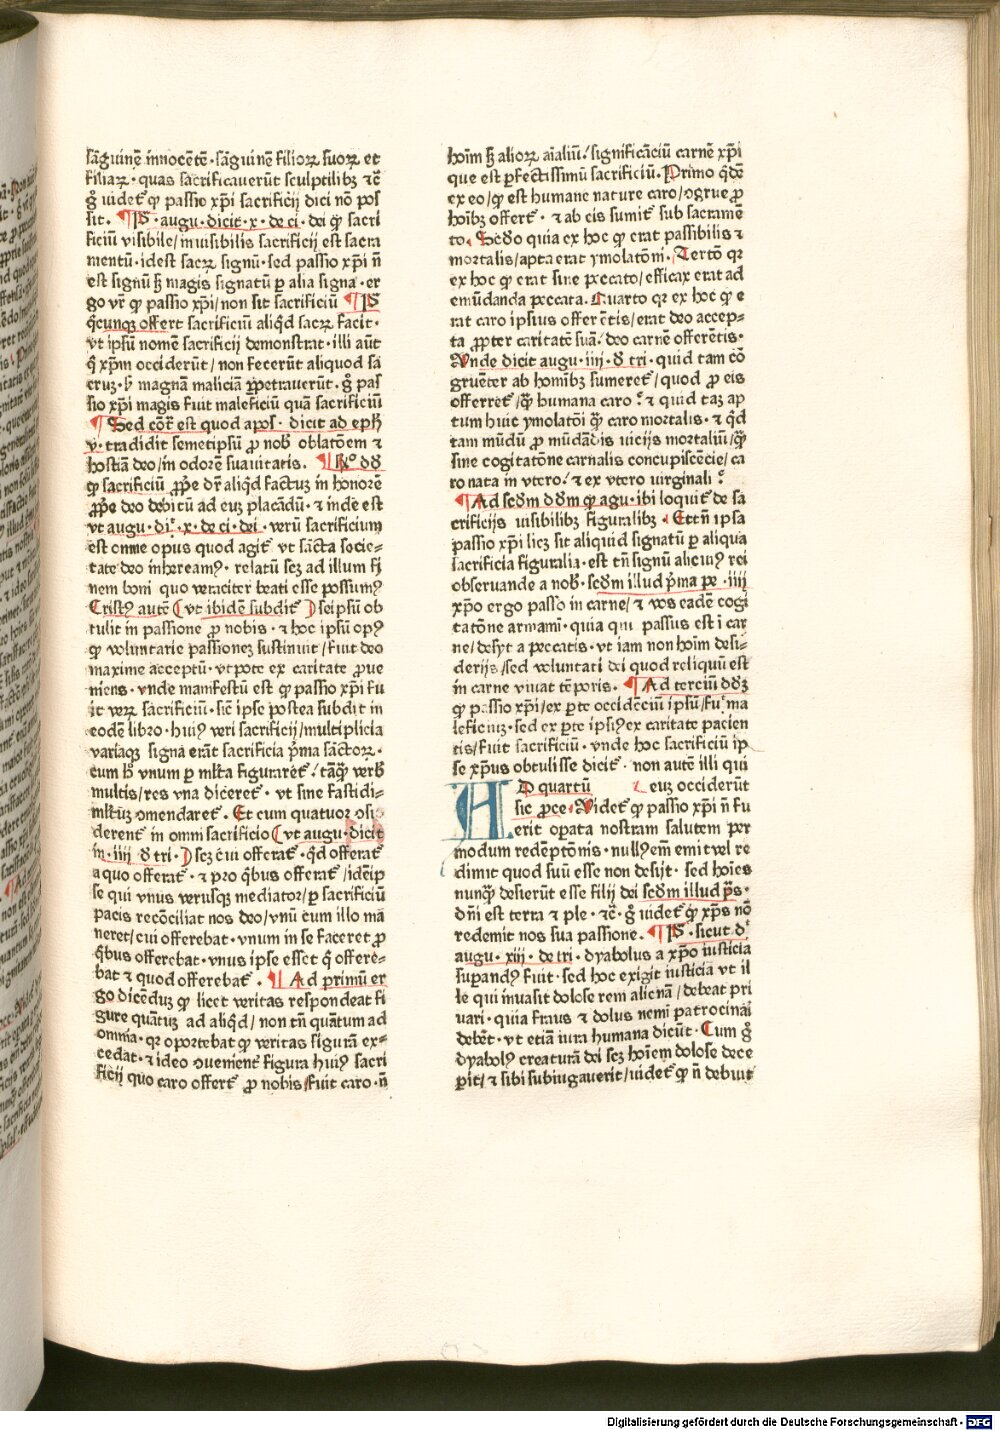 sāguinē īnnocētē · sāguinē filioꝝ suoꝝ et
filiaꝝ · quas sacrificaverūt sculptilibꝫ ⁊c̄
g̊ uidet᷑ ꝙ passio xp̄i sacrificij dici nō pos
sit . ¶ Pꝰ · augu · dicit · x · de ci · dei ꝙ̄ sacri
ficiū visibile / inuisibilis sacrificij est sacra
mentū · idest sacꝝ signū · sed passio xp̄i n̄
est signū ꝫ magis signatū ꝑ alia signa · er
go vr̄ ꝙ passio xp̄i / non sit sacrificiū ¶ Pꝰ
q̄cunqꝫ offert sacrificiū aliq̄d sacꝝ facit ·
vt ipsū nomē sacrificij demonstrat · illi aūt
q̄ xp̄m occiderūt / non fecerūt aliquod sa
cruꝫ · ꝫ magnā maliciā ꝑpetraverūt · g̊ pas
sio xp̄i magis fuit maleficiū quā sacrificiū
¶ Sed cōt̄ est quod apos · dicit ad eph̄
v · tradidit semetipsū ꝓ nob̄ oblatōem ⁊
hostiā deo / in odorē suauitatis . ¶ Rº dd̄
ꝙ sacrificiū ꝓp̄e dr̄ aliq̄d factuꝫ in honorē
ꝓp̄e deo debitū ad euꝫ placādū · ⁊ inde est
vt augu · di͛ · x · de ci · dei · verū sacrificium
est onme opus quod agit᷑ vt sācta socie=
tate deo inhereamꝰ · relatū scꝫ ad illum fi
nem boni quo veraciter beati esse possumꝰ
Cristꝰ autē ( vt ibidē subdit᷑ ) seipsū ob
tulit in passione ꝓ nobis · ⁊ hoc ipsū opꝰ
ꝙ voluntarie passioneꝫ sustinuit / fuit deo
maxime acceptū · vtpote ex caritate ꝓue
niens · vnde manifestū est ꝙ passio xp̄i fu
it veꝝ sacrificiū · sic̄ ipse postea subdit in
eodē libro · huiꝰ veri sacrificij / multiplicia
variaqꝫ signa erāt sacrificia p̄ma sāctoꝝ ·
cum ꝫ vnum ꝑ ml̄ta figuraret᷑ / tāꝙ̄ verb̄
multis / res vna diceret᷑ · vt sine fastidi=
ml̄tūꝫ ꝯmendaret᷑ · Et cum quatuor ꝯsi
derent᷑ in omni sacrificio ( vt augu · dicit
in · iiii · d̄ tri · ) scꝫ cui offerat᷑ · qd̄ offerat᷑
a quo offerat᷑ · ⁊ pro q̄bus offerat᷑ / idēip
se qui vnus verusqꝫ mediator / ꝑ sacrificiū
pacis recōciliat nos deo / vnū cum illo ma
neret / cui offerebat · vnum in se faceret ꝓ
q̄bus offerebat · vnus ipse esset q̄ offere=
bat ⁊ quod offerebat . ¶ Ad primū er
go dicēduꝫ ꝙ licet veritas respondeat fi
gure quātuꝫ ad aliq̄d / non tn̄ quātum ad
omnia · qꝛ oportebat ꝙ veritas figurā ex=
cedat · ⁊ ideo ꝯuenient᷑ figura huiꝰ sacri
ficij quo caro offert᷑ ꝓ nobis / fuit caro · n̄
hoīm ꝫ alioꝝ aīaliū / significāciū carnē xp̄i
que est ꝑfectissimū sacrificiū . Primo q̄dē
ex eo / ꝙ est humane nature caro / ꝯgrue ꝓ
hoībꝫ offert᷑ · ⁊ ab eis sumit᷑ sub sacramē
to . Scdo quia ex hoc ꝙ erat passibilis ⁊
mortalis / apta erat ymolatōni . Tertō qꝛ
ex hoc ꝙ erat sine peccato / efficax erat ad
emūdanda peccata . Quarto qꝛ ex hoc ꝙ e
rat caro ipsius offerētis / erat deo accep=
ta ꝓpter caritatē suā / deo carnē offerētis ·
Vnde dicit augu · iiii · d̄ tri · quid tam cō
gruēter ab homībꝫ sumeret᷑ / quod ꝓ eis
offerret᷑ / ꝙ̄ humana caro ͛ ⁊ quid taꝫ ap
tum huic ymolatōi ꝙ̄ caro mortalis · ⁊ q̄d
tam mūdū ꝓ mūdādis vicijs mortaliū / ꝙ̄
sine cogitatōne carnalis concupiscēcie / ca
ro nata in vtero / ⁊ ex vtero virginali ͛
¶ Ad scdm ddm ꝙ agu · ibi loquit᷑ de sa
crificijs visibilibꝫ figuralibꝫ · Et tn̄ ipsa
passio xp̄i licꝫ sit aliquid signatū ꝑ aliqua
sacrificia figuralia · est tn̄ signū alicuiꝰ rei
obseruande a nob̄ · scdm illud p̄ma pe · iiii
xp̄o ergo passo in carne / ⁊ vos eadē cogi
tatōne armami · quia qui passus est ī car
ne / desijt a peccatis · vt iam non hoīm desi=
derijs / sed voluntati dei quod reliquū est
in carne vivat tēporis . ¶ Ad terciū ddꝫ
ꝙ passio xp̄i / ex ꝑte occidēciū ipsū / fu͛ ma
leficiuꝫ · sed ex ꝑte ipsiꝰ ex caritate pacien
tis / fuit sacrificiū · vnde hoc sacrificiū ip
se xp̄us obtulisse dicit᷑ · non autē illi qui
AD quartū euꝫ occiderūt
sic ꝓce · Videt᷑ ꝙ passio xp̄i n̄ fu
erit oꝑata nostram salutem per
modum redēptōnis · nullꝰ em̄ emit vel re
dimit quod suū esse non desijt · sed hoīes
nunqꝙ̄ desierūt esse filij dei scdm illud p̄s ·
dn̄i est terra ⁊ ple · ⁊c̄ · g̊ uidet᷑ ꝙ xp̄s nō
redemit nos sua passione . ¶ Pꝰ · sicut d͛
augu · xiii · de tri · dyabolus a xp̄o iusticia
suꝑandꝰ fuit · sed hoc exigit iusticia vt il
le qui inuasit dolose rem alienā / debeat pri
uari · quia fraus ⁊ dolus nemī patrocinai᷑
debēt · vt etiā iura humana dicūt · Cum g̊
dyabolꝰ creaturā dei scꝫ hoīem dolose dece
ꝑit / ⁊ sibi subiugauerit / uidet᷑ ꝙ n̄ debuit
Digitalisierung gefördert durch die Deutsche Forschungsgemeinschaft - DFG